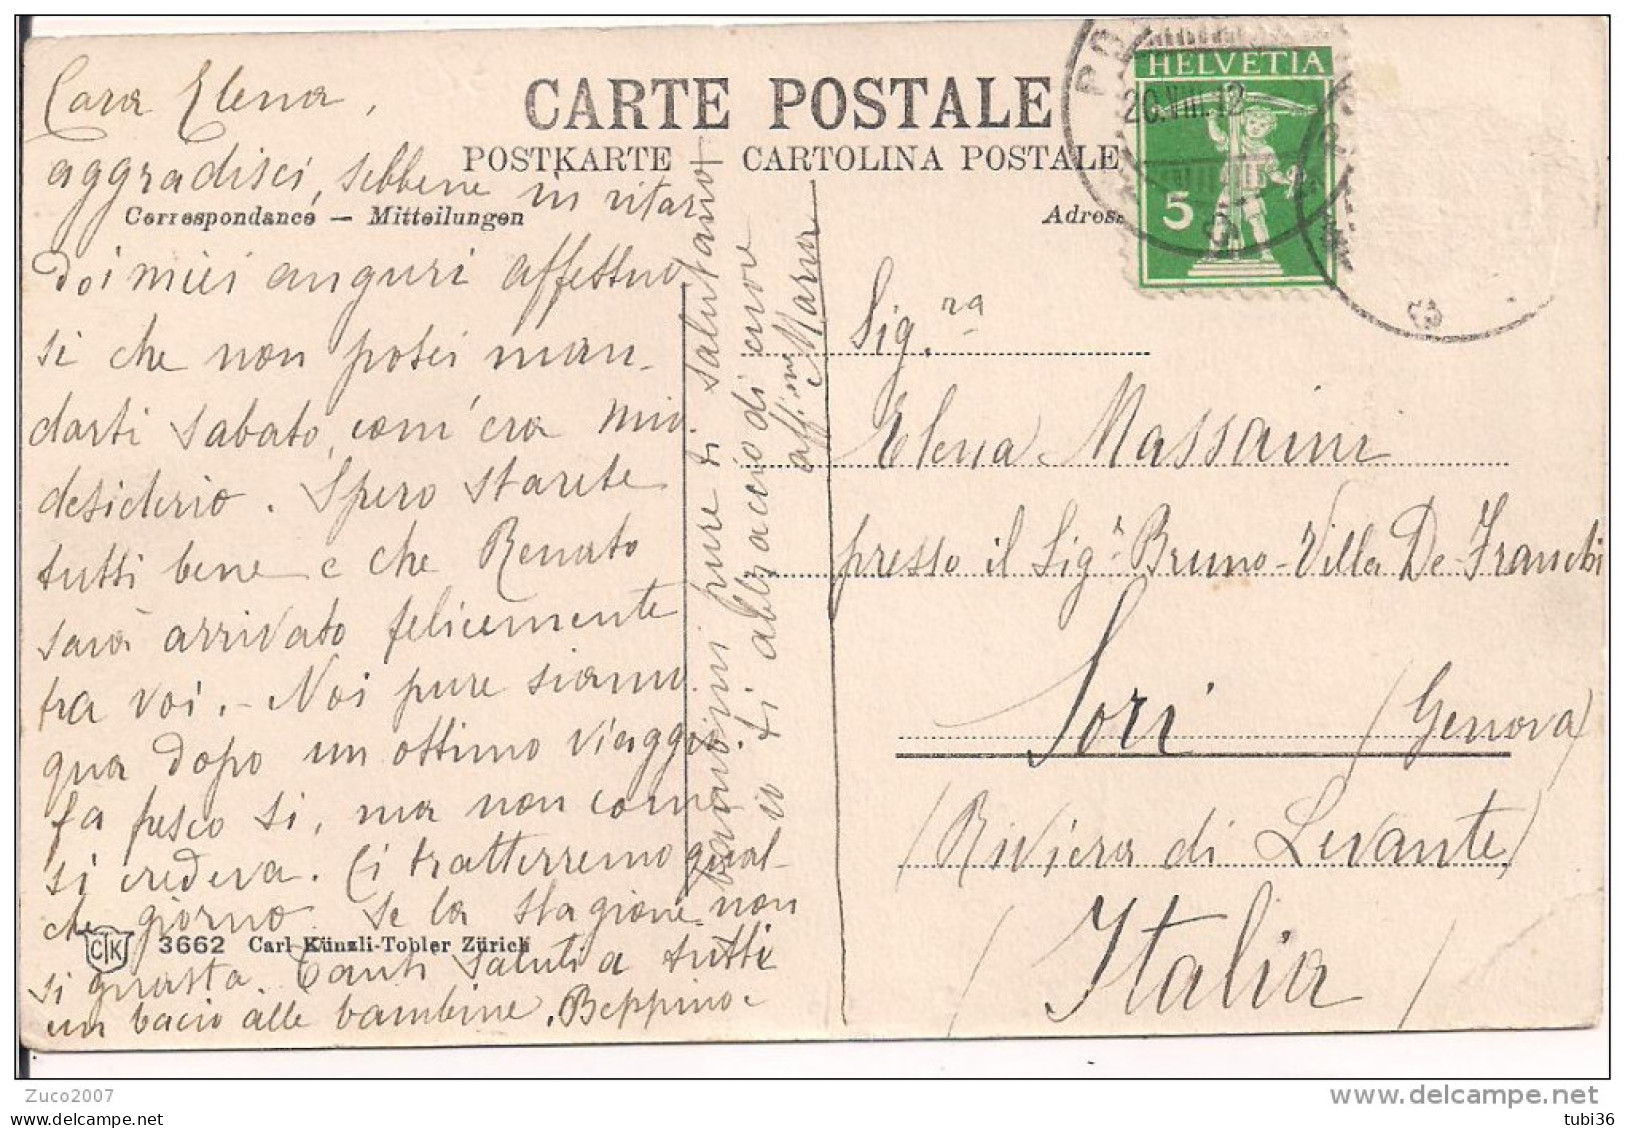 CARTE POSTALE
POSTKARTE CARTOLINA POSTALE
Correspondance — Mitteilungen
Adress
HELVETIA
5
20.VIII.12
Cara Elena,
aggradisci, sebbene in ritar
doi miei auguri affettuo
si che non potei man-
darti sabato, com'era mio
desiderio. Spero starete
tutti bene e che Renato
sarà arrivato felicemente
tra voi. - Noi pure siamo
qua dopo un ottimo viaggio.
fa fresco si, ma non come
si credeva. Ci tratterremo qual-
che giorno se la stagione non
si guasta. Tanti saluti a tutti
un bacio alle bambine. Beppino e
bambini pure ti salutano
io ti abbraccio di cuore
aff.ma Maria
Sig.ra
Elena Massaini
presso il Sig.r Bruno - Villa De-Franchi
Sori (Genova)
(Riviera di Levante)
(Italia)
CK 3662 Carl Künzli-Tobler Zürich
Zuco2007
www.delcampe.net
Tous droits réservés
tubi36